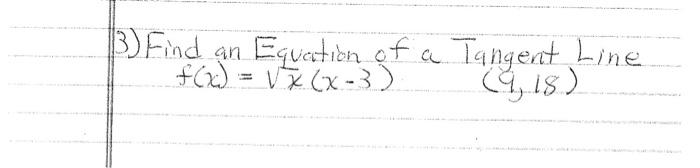 3) Find an Equation of a Tangent Line
f(x) = √x (x-3) (9, 18)